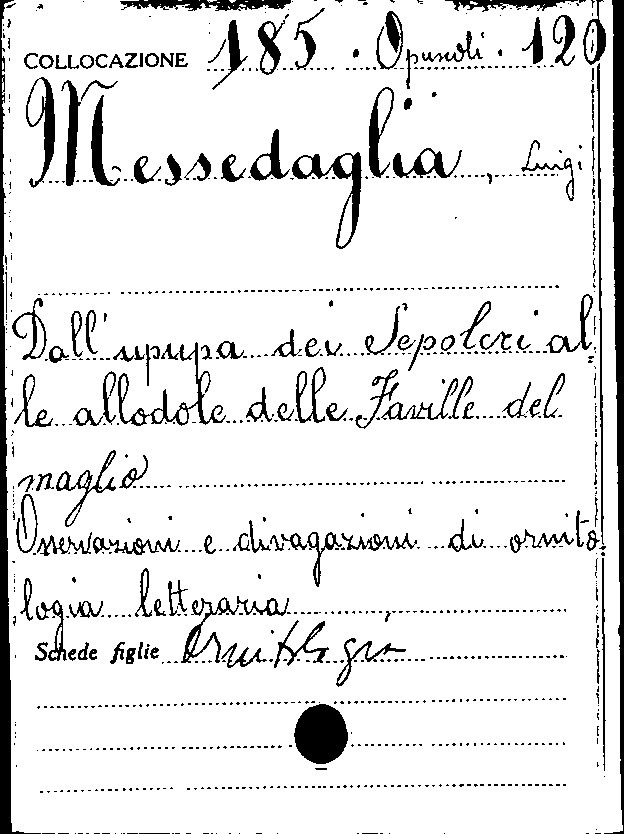 COLLOCAZIONE 185. Opuscoli. 120
Messedaglia, Luigi
Dall'upupa dei Sepolcri al=
le allodole delle Faville del
maglio
Osservazioni e divagazioni di ornito=
logia letteraria
Schede figlie Ornitologia